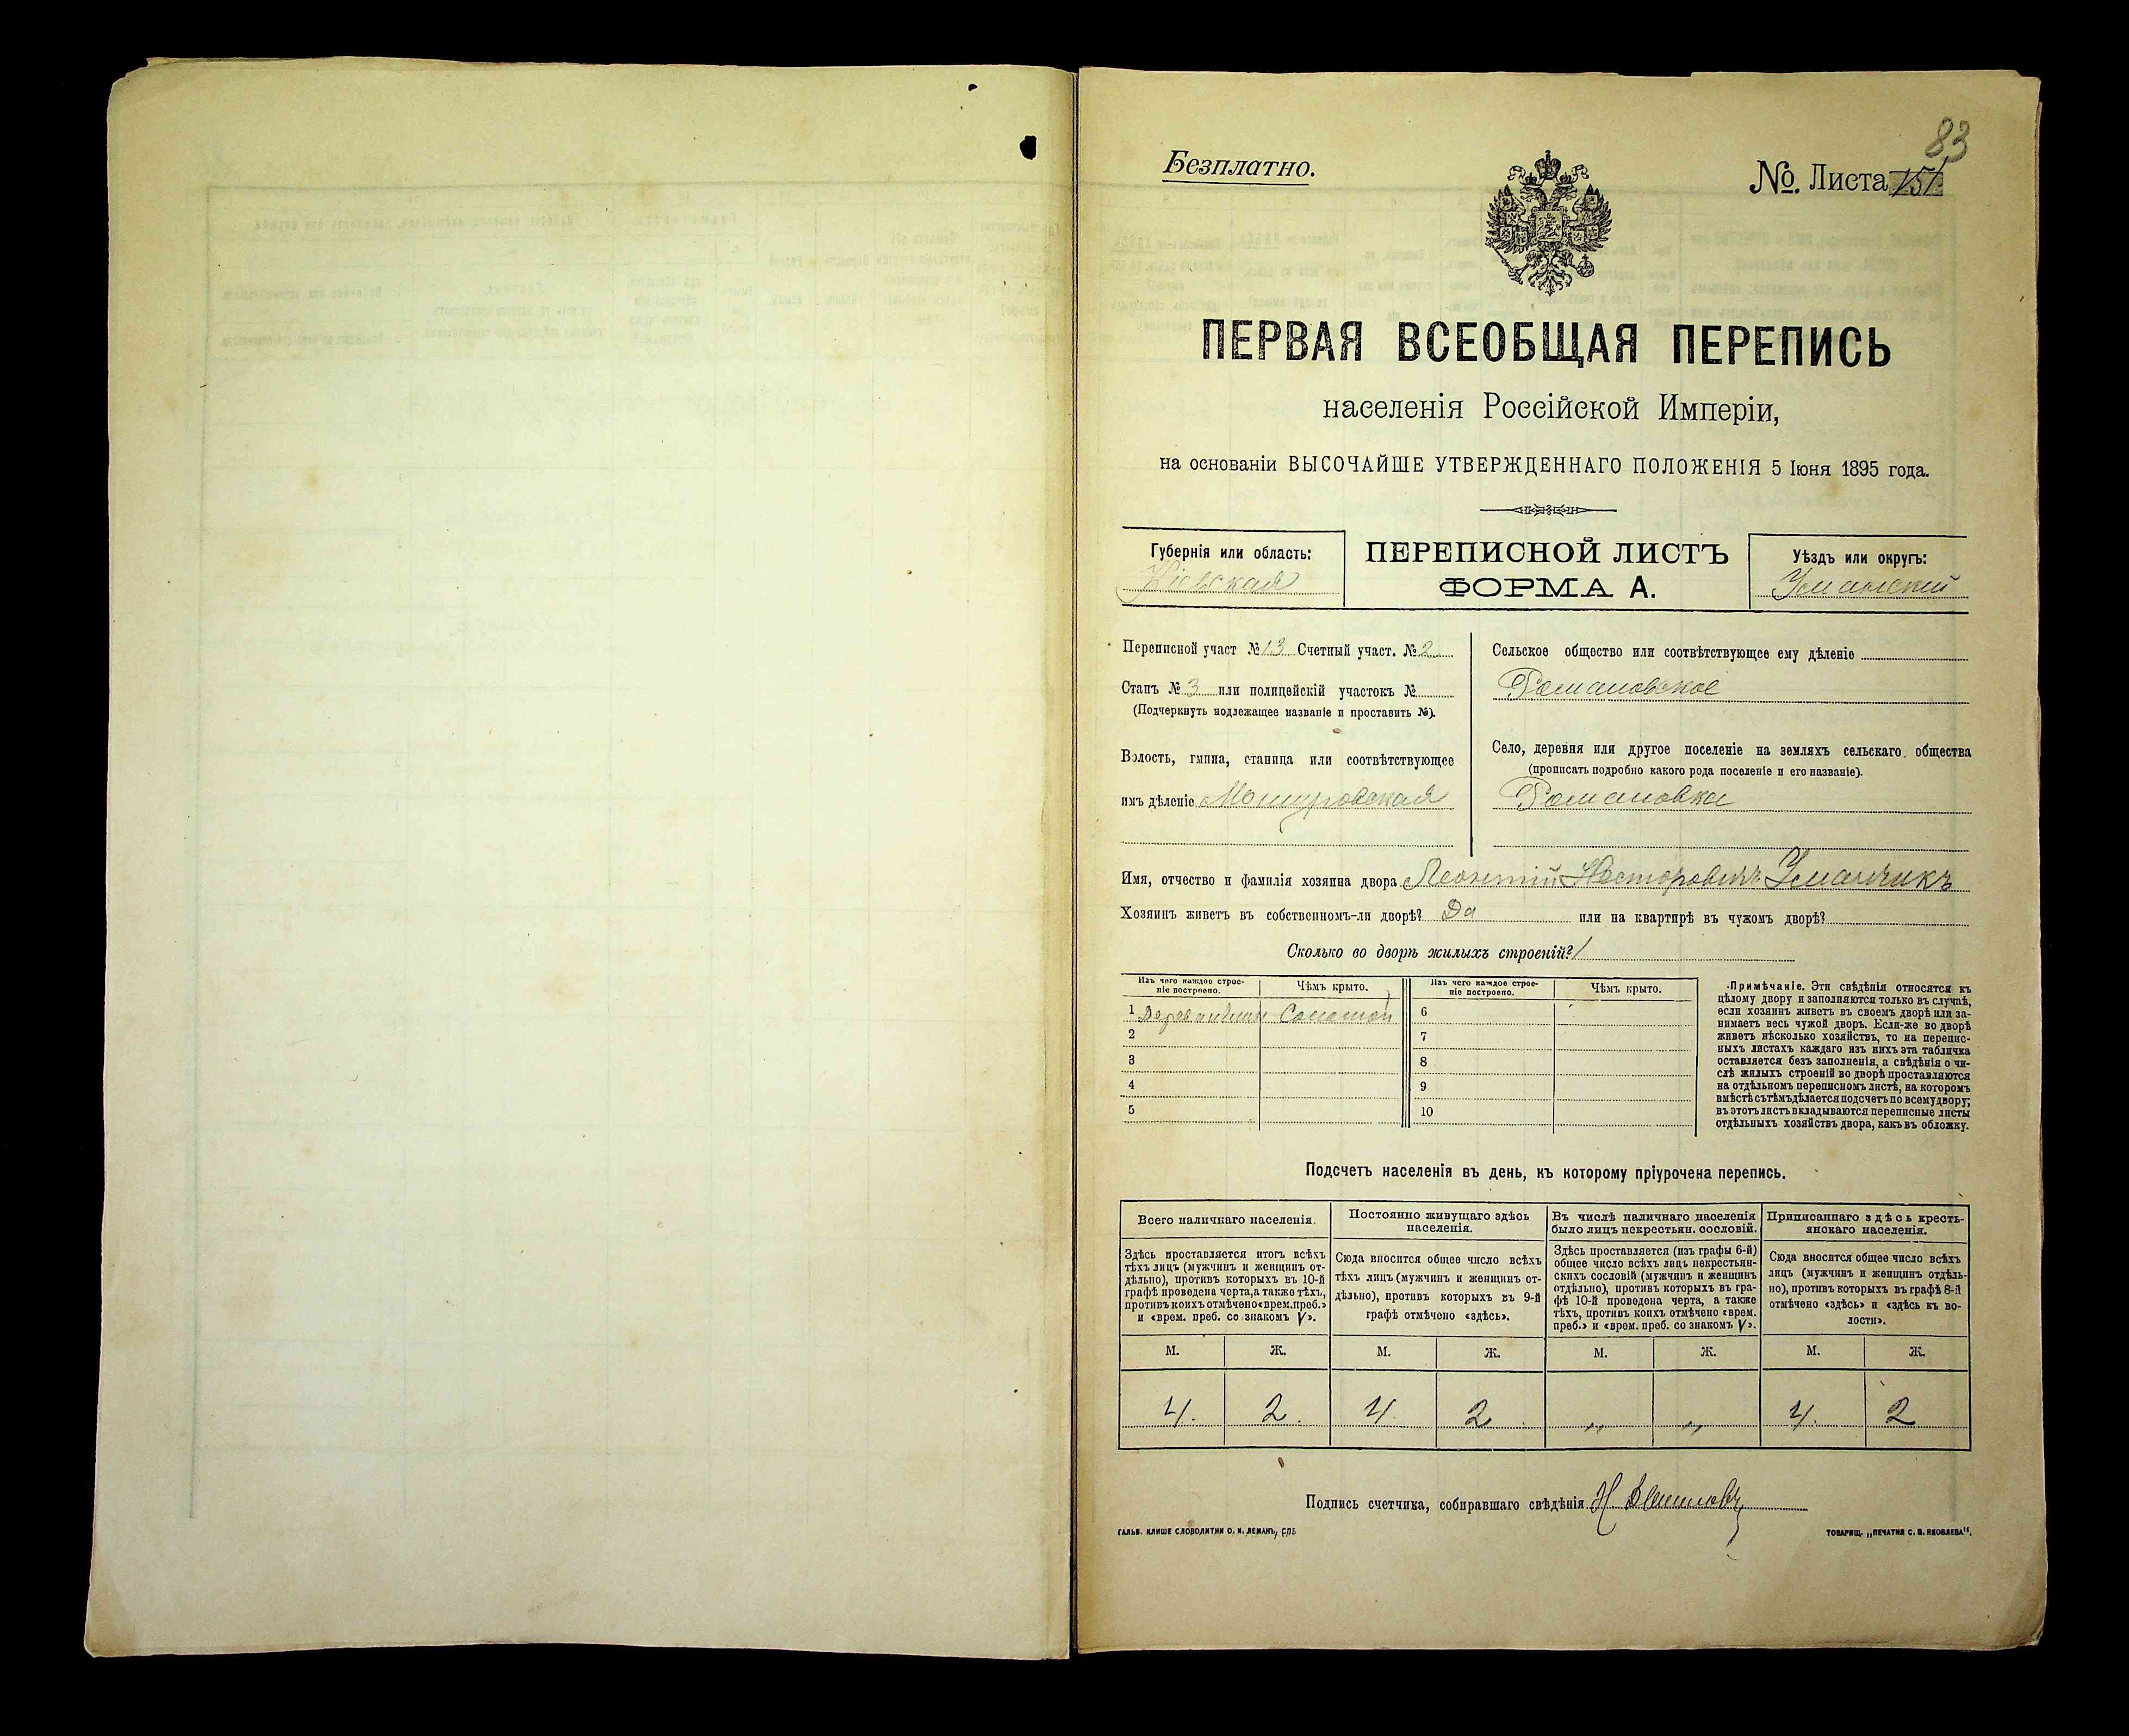 83
Безплатно.
№. Листа 151
ПЕРВАЯ ВСЕОБЩАЯ ПЕРЕПИСЬ
населенія Россійской Имперіи,
на основаніи ВЫСОЧАЙШЕ УТВЕРЖДЕННАГО ПОЛОЖЕНІЯ 5 Іюня 1895 года.
Губернія или область:
Кіевская
ПЕРЕПИСНОЙ ЛИСТЪ
ФОРМА А.
Уѣздъ или округъ:
Уманскій
Переписной участ №13 Счетный участ. №2
Станъ № 3 или полицейскій участокъ №
(Подчеркнуть подлежащее названіе и проставить №).
Волость, гмина, станица или соотвѣтствующее
имъ дѣленіе Мошуровская
Сельское общество или соотвѣтствующее ему дѣленіе
Романовское
Село, деревня или другое поселеніе на земляхъ сельскаго общества
(прописать подробно какого рода поселеніе и его названіе).
Романовка
Имя, отчество и фамилія хозяина двора Леонтій Несторовичъ Уманчикъ
Хозяинъ живетъ въ собственномъ-ли дворѣ? Да или на квартирѣ въ чужомъ дворѣ?
Сколько во дворѣ жилыхъ строеній? 1
Изъ чего каждое строе-
ніе построено.
Чѣмъ крыто.
Изъ чего каждое строе-
ніе построено.
Чѣмъ крыто.
1 Соломой
2
3
4
5
6
7
8
9
10
Примѣчаніе. Эти свѣдѣнія относятся къ
цѣлому двору и заполняются только въ случаѣ,
если хозяинъ живетъ въ своемъ дворѣ или за-
нимаетъ весь чужой дворъ. Если-же во дворѣ
живетъ нѣсколько хозяйствъ, то на перепис-
ныхъ листахъ каждаго изъ нихъ эта табличка
оставляется безъ заполненія, а свѣдѣнія о чи-
слѣ жилыхъ строеній во дворѣ проставляются
на отдѣльномъ переписномъ листѣ, на которомъ
вмѣстѣ съ тѣмъ дѣлается подсчетъ по всему двору;
въ этотъ листъ вкладываются переписные листы
отдѣльныхъ хозяйствъ двора, какъ въ обложку.
Подсчетъ населенія въ день, къ которому пріурочена перепись.
Всего наличнаго населенія.
Здѣсь проставляется итогъ всѣхъ
тѣхъ лицъ (мужчинъ и женщинъ от-
дѣльно), противъ которыхъ въ 10-й
графѣ проведена черта, а также тѣхъ,
противъ коихъ отмѣчено «врем. преб.»
и «врем. преб. со знакомъ V».
Постоянно живущаго здѣсь
населенія.
Сюда вносится общее число всѣхъ
тѣхъ лицъ (мужчинъ и женщинъ от-
дѣльно), противъ которыхъ въ 9-й
графѣ отмѣчено «здѣсь».
Въ числѣ наличнаго населенія
было лицъ некрестьян. сословій.
Здѣсь проставляется (изъ графы 6-й)
общее число всѣхъ лицъ некрестьян-
скихъ сословій (мужчинъ и женщинъ
отдѣльно), противъ которыхъ въ гра-
фѣ 10-й проведена черта, а также
тѣхъ, противъ коихъ отмѣчено «врем.
преб.» и «врем. преб. со знакомъ V».
Приписаннаго здѣсь кресть-
янскаго населенія.
Сюда вносится общее число всѣхъ
лицъ (мужчинъ и женщинъ отдѣль-
но), противъ которыхъ въ графѣ 8-й
отмѣчено «здѣсь» и «здѣсь къ во-
лости».
М. Ж. М. Ж. М. Ж. М. Ж.
4. 2. 4 2 „ „ 4. 2
Подпись счетчика, собиравшаго свѣдѣнія
ГАЛЬВ. КЛИШЕ СЛОВОЛИТНИ О. И. ЛЕМАНЪ, СПБ
ТОВАРИЩ. „ПЕЧАТНЯ С. П. ЯКОВЛЕВА".